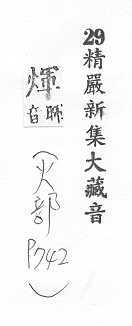 29精嚴新集大藏音
煇
音暉
(火部
P742
)